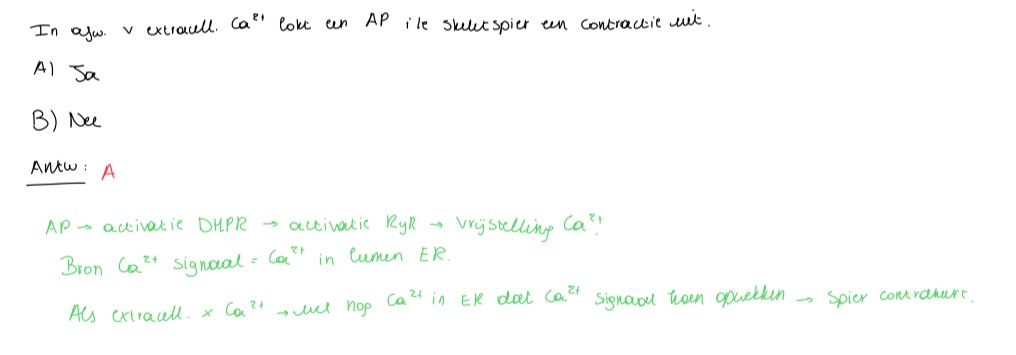 In afw. v extracell. Ca²⁺ lokt een AP i/e skeletspier een contractie uit.
A) Ja
B) Nee
Antw: A
AP → activatie DHPR → activatie RyR → vrijstelling Ca²⁺.
Bron Ca²⁺ signaal = Ca²⁺ in lumen ER.
Als extracell. x Ca²⁺ → wel nog Ca²⁺ in ER dat Ca²⁺ signaal kan opwekken → spier contraheert.